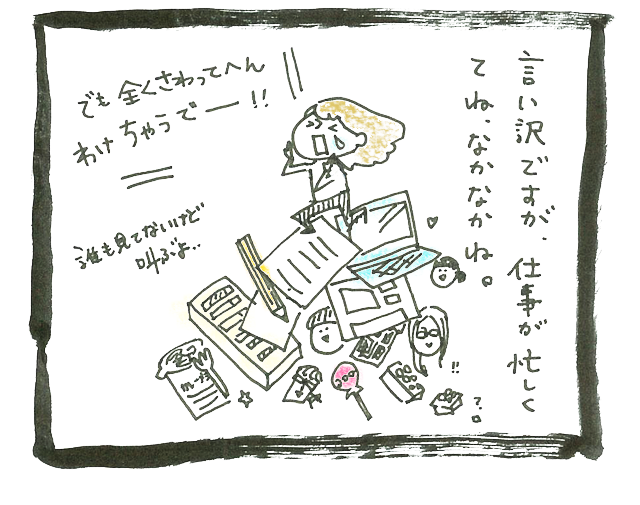 言い訳ですが、仕事が忙しく
てね、なかなかね。
でも全くさわってへん
わけちゃうでー!!
誰も見てないけど
叫ぶよ..
!!
?。